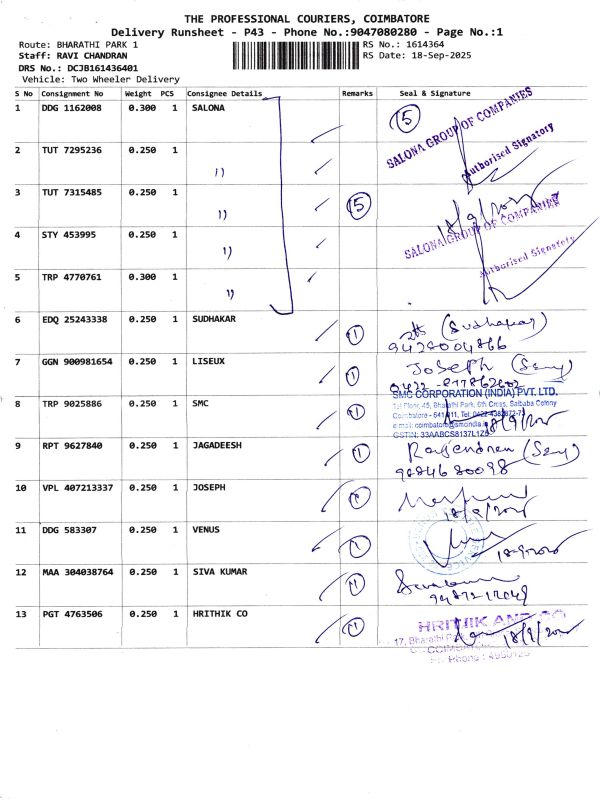 THE PROFESSIONAL COURIERS, COIMBATORE
Delivery Runsheet - P43 - Phone No.:9047080280 - Page No.:1
Route: BHARATHI PARK 1
RS No.: 1614364
Staff: RAVI CHANDRAN
RS Date: 18-Sep-2025
DRS No.: DCJB161436401
Vehicle: Two Wheeler Delivery
S No Consignment No Weight PCS Consignee Details Remarks Seal & Signature
1 DDG 1162008 0.300 1 SALONA 5
SALONA GROUP OF COMPANIES
Authorised Signatory
2 TUT 7295236 0.250 1 〃
3 TUT 7315485 0.250 1 〃 5
18/9/2025
SALONA GROUP OF COMPANIES
Authorised Signatory
4 STY 453995 0.250 1 〃
5 TRP 4770761 0.300 1 〃
6 EDQ 25243338 0.250 1 SUDHAKAR 1 (Sudhakar)
7 GGN 900981654 0.250 1 LISEUX 1 Joseph
8 TRP 9025886 0.250 1 SMC 1
SMC CORPORATION (INDIA) PVT. LTD.
1st Floor, 45, Bharathi Park, 6th Cross, Saibaba Colony
Coimbatore - 641 011, Tel: 0422-4382872-73
e-mail: coimbatore@smcindia.in
GSTIN: 33AABCS8137L1Z6
18/9/2025
9 RPT 9627840 0.250 1 JAGADEESH 1 Rajendran
10 VPL 407213337 0.250 1 JOSEPH 1
18/9/2025
11 DDG 583307 0.250 1 VENUS 1
18-9-2025
12 MAA 304038764 0.250 1 SIVA KUMAR 1
13 PGT 4763506 0.250 1 HRITHIK CO 1
HRITHIK AND CO
17, Bharathi Park
18/9/2025